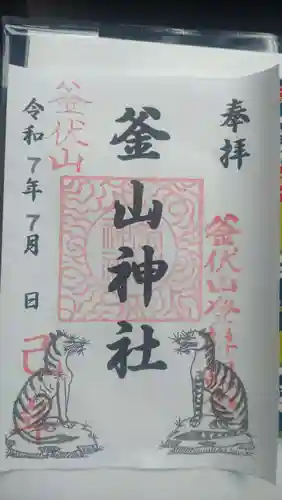 奉拝
釜伏山登拝
釜山神社
釜伏山
令和7年7月 日